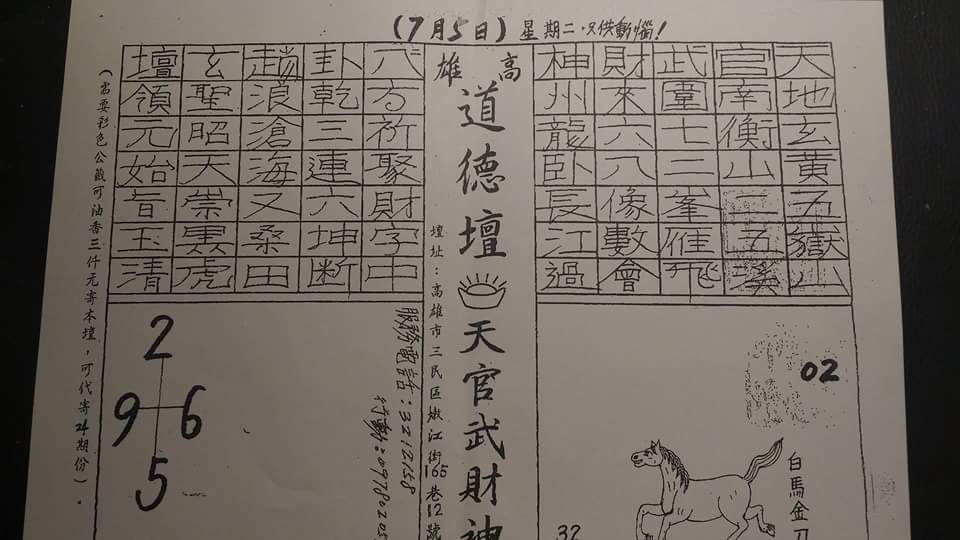 (7月5日)星期二.只供動惱!
天地玄黃五嶽山
官南衡山二五溪
武圍七二峯雁飛
財來六八像數會
神州龍臥長江過
02
白馬金刀
32
高雄
道德壇 天官武財神
壇址:高雄市三民區嫩江街165巷12號
八方祈聚財字中
卦乾三連六坤断
趙浪滄海又桑田
玄聖昭天崇黑虎
壇領元始旨玉清
服務電話:3212158
行動:09780205
2
9 6
5
(需要彩色公藏可油香三仟元寄本壇,可代寄24期份)。